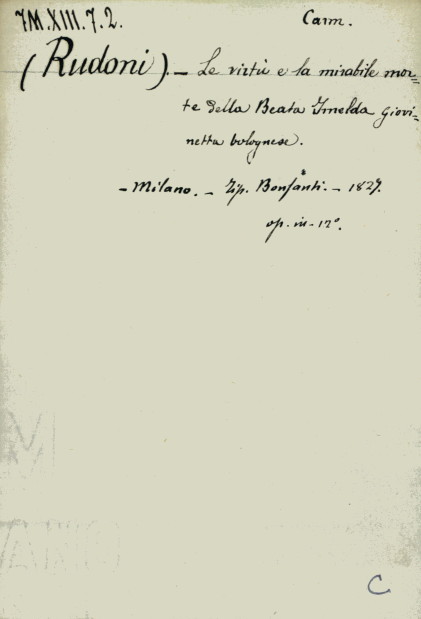 7M.XIII.7.2. Carm.
(Rudoni). – Le virtù e la mirabile mor-
te della Beata Imelda giovi-
netta bolognese.
– Milano. – Tip. Bonfanti. – 1827.
op. in-12°.
C